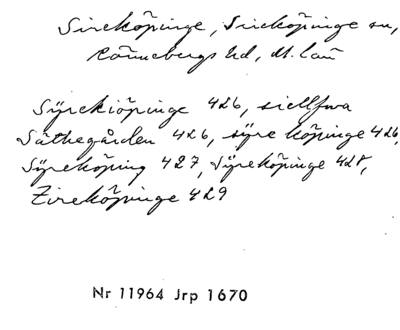 Sireköpinge, Sireköpinge sn,
Rönnebergs hd, M. län
Sÿrekiöpinge 426, siellfwa
Säthegården 426, sÿre köpinge 426,
Sÿreköping 427, Sÿreköpinge 428,
Zireköpinge 429
Nr 11964 Jrp 1670